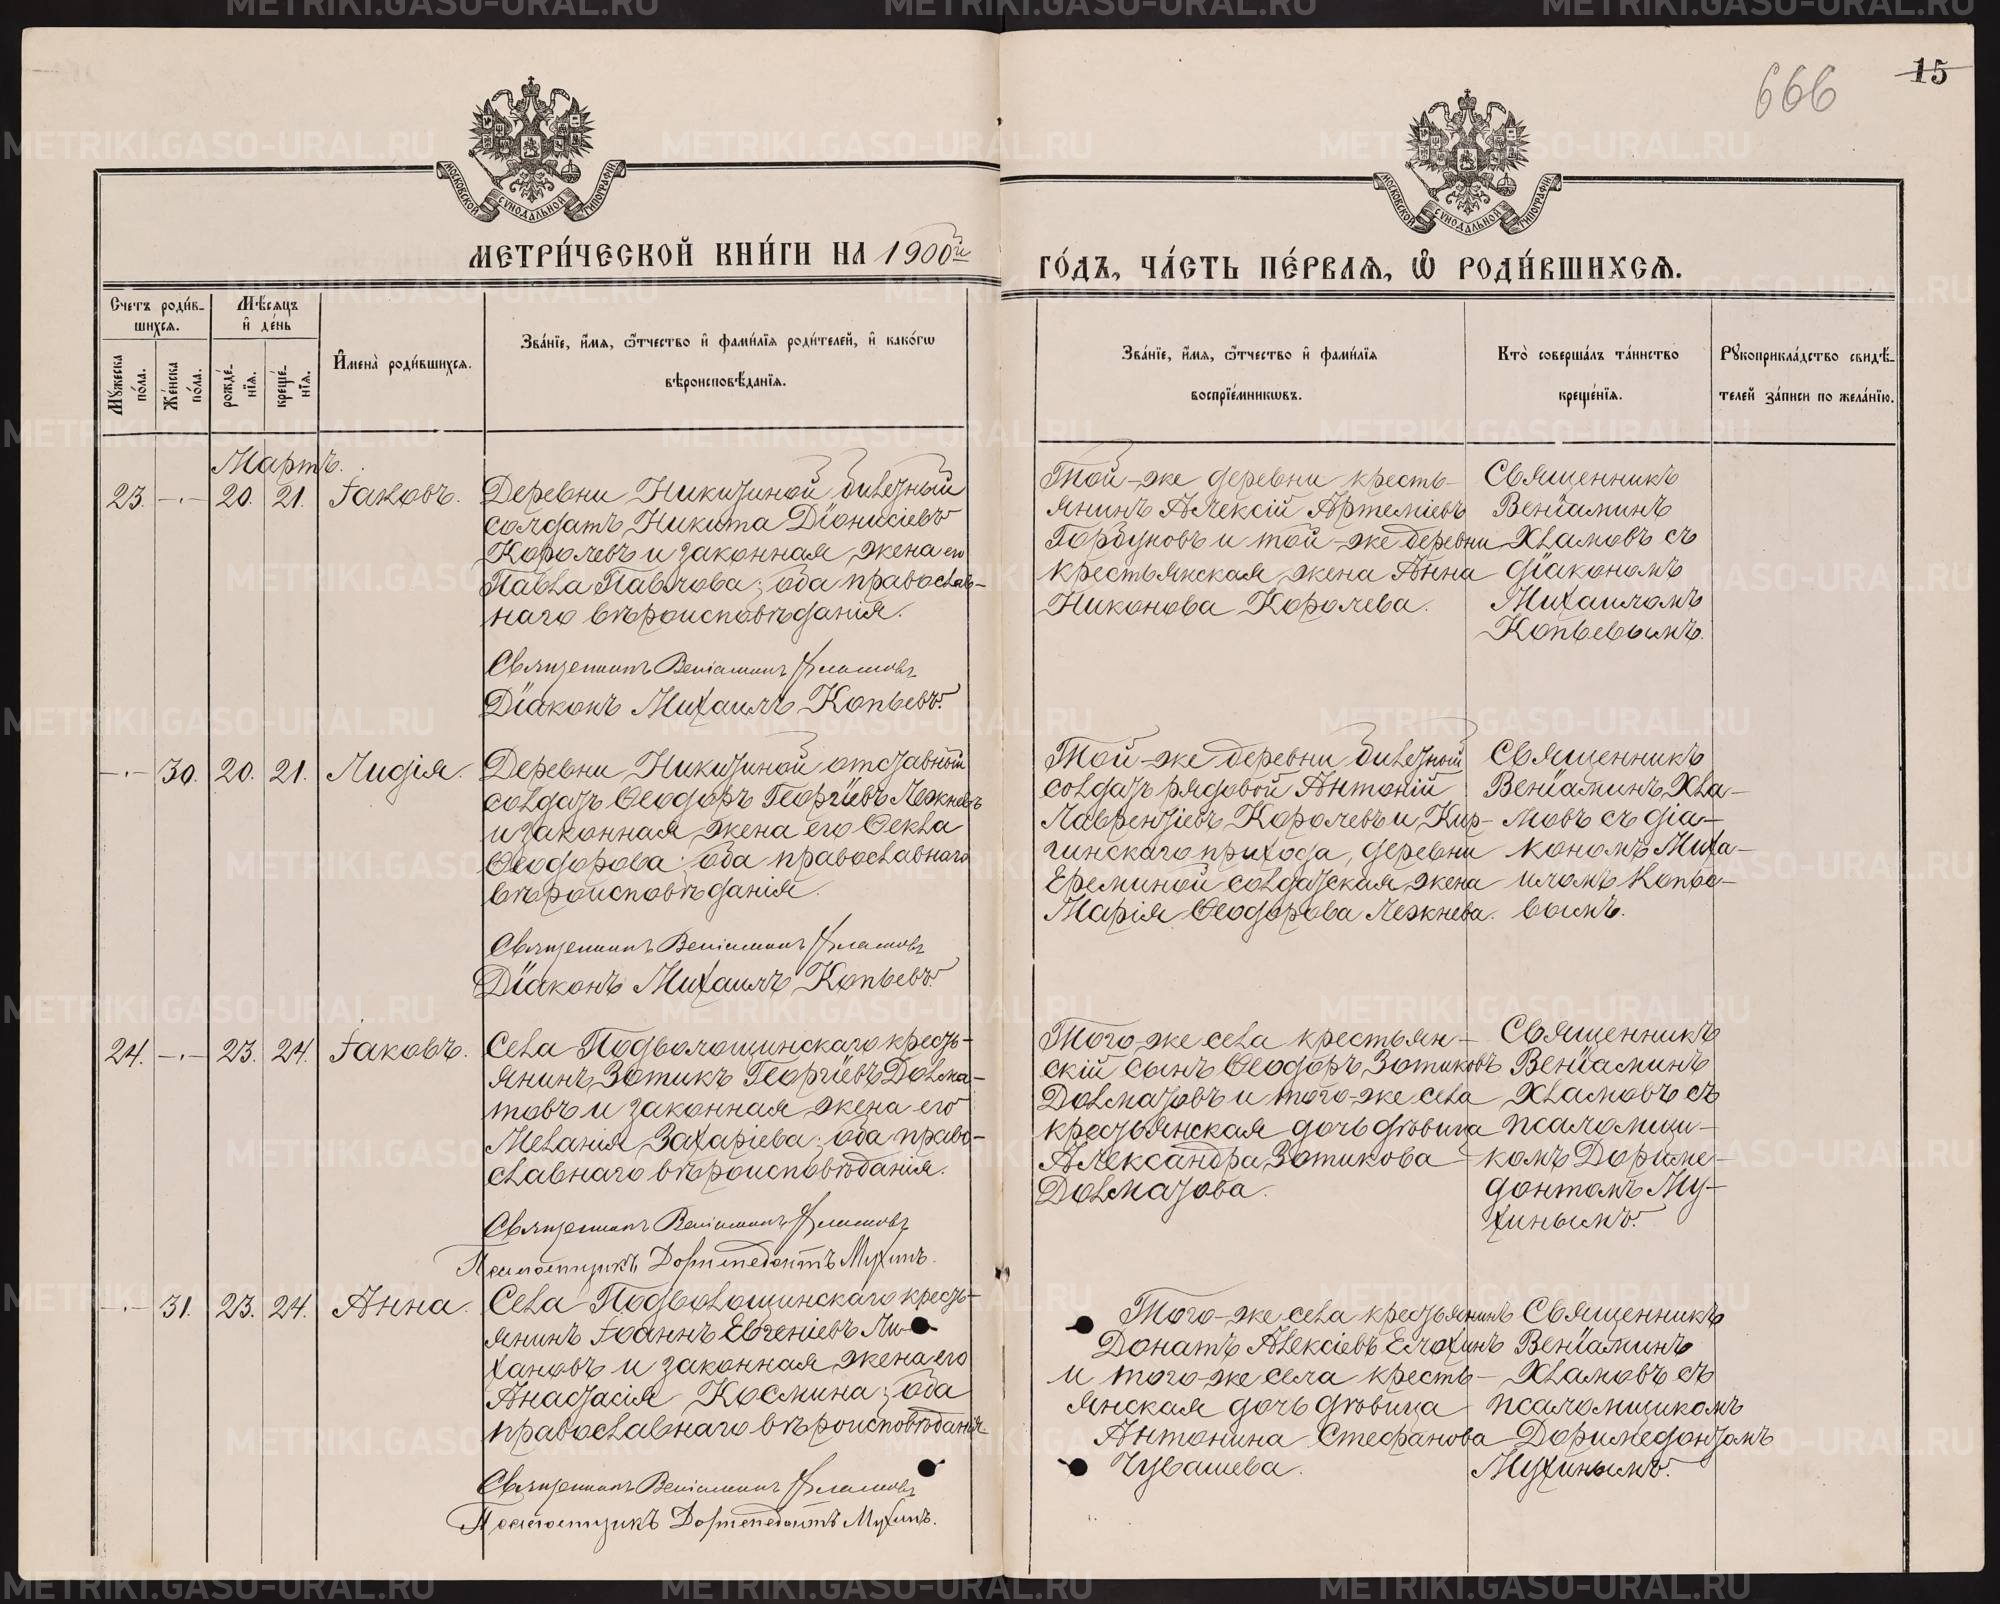 666
15
МОСКОВСКОЙ СУНОДАЛЬНОЙ ТИПОГРАФІИ
МОСКОВСКОЙ СУНОДАЛЬНОЙ ТИПОГРАФІИ
МЕТРИ́ЧЕСКОЙ КНИ́ГИ НА 1900й
ГО́ДЪ, ЧА́СТЬ ПЕ́РВАѦ, Ѡ҆ РОДИ́ВШИХСѦ.
Счетъ роди́в-
шихсѧ.
Мѣ́сѧцъ
и҆ де́нь
Мꙋ́жеска по́ла.
Же́нска по́ла.
рожде́-нїѧ.
креще́-нїѧ.
И҆мена̀ роди́вшихсѧ.
Зва́нїе, и҆́мѧ, ѻ҆́тчество и҆ фами́лїѧ роди́телей, и҆ како́гѡ
вѣроисповѣ́данїѧ.
Зва́нїе, и҆́мѧ, ѻ҆́тчество и҆ фами́лїѧ
воспрїе́мникѡвъ.
Кто̀ соверша́лъ та́инство
креще́нїѧ.
Рꙋкоприкла́дство свидѣ́-
телей за́писи по жела́нїю.
Мартъ.
23. — . — 20. 21. Іаковъ.
Деревни Никитиной билетный
солдатъ Никита Діонисіевъ
Королевъ и законная жена его
Павла Павлова; оба православ-
наго вѣроисповѣданія.
Священникъ Веніаминъ Хламовъ
Діаконъ Михаилъ Копьевъ.
Той-же деревни кресть-
янинъ Алексій Артеміевъ
Горбуновъ и той-же деревни
крестьянская жена Анна
Никонова Королева.
Священникъ
Веніаминъ
Хламовъ съ
діакономъ
Михаиломъ
Копьевымъ.
— . — 30. 20. 21. Лидія.
Деревни Никитиной отставный
солдатъ Ѳеодоръ Георгіевъ Лежневъ
и законная жена его Ѳекла
Ѳеодорова; оба православнаго
вѣроисповѣданія.
Священникъ Веніаминъ Хламовъ
Діаконъ Михаилъ Копьевъ.
Той-же деревни билетный
солдатъ рядовой Антоній
Лаврентіевъ Королевъ и Кир-
гинскаго прихода, деревни
Ереминой солдатская жена
Марія Ѳеодорова Лежнева.
Священникъ
Веніаминъ Хла-
мовъ съ діа-
кономъ Миха-
иломъ Копье-
вымъ.
24. — . — 23. 24. Іаковъ.
Села Подволошинскаго кресть-
янинъ Зотикъ Георгіевъ Долма-
товъ и законная жена его
Меланія Захаріева; оба право-
славнаго вѣроисповѣданія.
Священникъ Веніаминъ Хламовъ
Псаломщикъ Доримедонтъ Мухинъ.
Того-же села крестьян-
скій сынъ Ѳеодоръ Зотиковъ
Долматовъ и того-же села
крестьянская дочь дѣвица
Александра Зотикова
Долматова.
Священникъ
Веніаминъ
Хламовъ съ
псаломщи-
комъ Дориме-
донтомъ Му-
хинымъ.
— . — 31. 23. 24. Анна.
Села Подволошинскаго кресть-
янинъ Іоаннъ Евгеніевъ Ли-
хановъ и законная жена его
Анастасія Космина; оба
православнаго вѣроисповѣданія.
Священникъ Веніаминъ Хламовъ
Псаломщикъ Доримедонтъ Мухинъ.
Того-же села крестьянинъ
Донатъ Алексіевъ Елохинъ
и того-же села кресть-
янская дочь дѣвица
Антонина Стефанова
Чувашева.
Священникъ
Веніаминъ
Хламовъ съ
псаломщикомъ
Доримедонтомъ
Мухинымъ.
METRIKI.GASO-URAL.RU